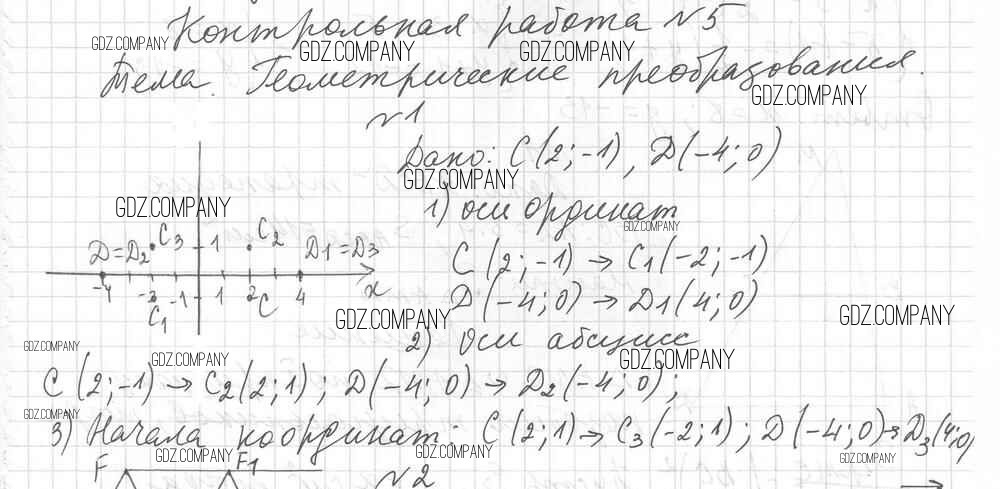 Контрольная работа №5
GDZ.COMPANY GDZ.COMPANY GDZ.COMPANY
Тема. Геометрические преобразования.
GDZ.COMPANY
№1
Дано: C(2;-1), D(-4;0)
GDZ.COMPANY
GDZ.COMPANY
1) оси ординат
GDZ.COMPANY
D=D2 C3 1 C2 D1=D3
C(2;-1) → C1(-2;-1)
-4 -2 -1 1 2 C 4 x
C1
D(-4;0) → D1(4;0)
GDZ.COMPANY GDZ.COMPANY
2) Оси абсцисс
GDZ.COMPANY GDZ.COMPANY GDZ.COMPANY
C(2;-1) → C2(2;1); D(-4;0) → D2(-4;0);
GDZ.COMPANY
3) Начала координат: C(2;1) → C3(-2;1); D(-4;0) → D3(4;0)
GDZ.COMPANY GDZ.COMPANY GDZ.COMPANY
F F1 №2